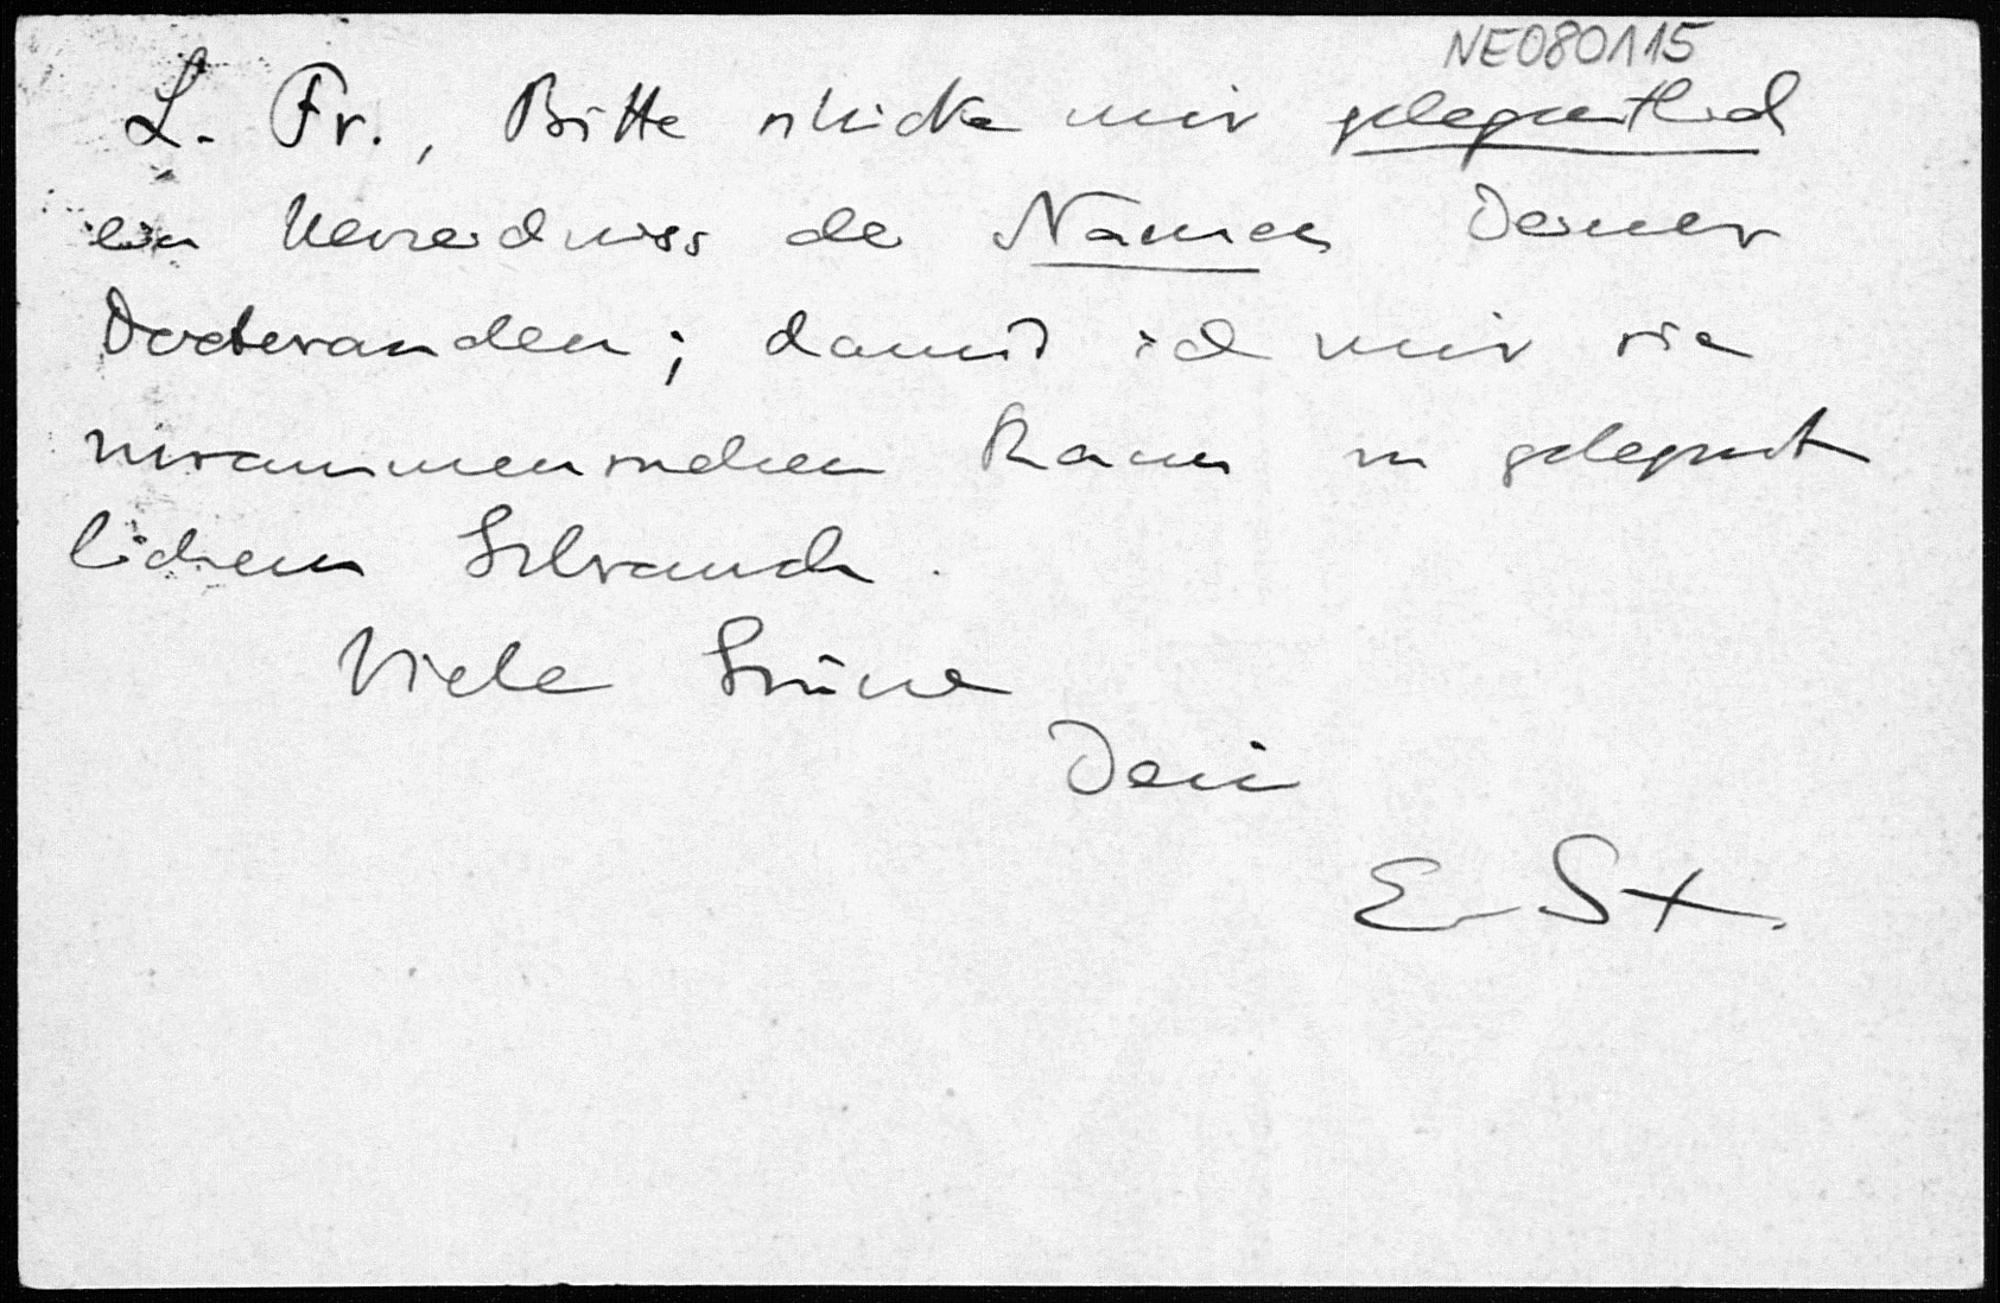 NE080115
L. Fr., Bitte schicke mir gelegentlich
ein Verzeichniss der Namen Deiner
Doctoranden; damit ich mir sie
zusammensuchen kann zu gelegent
lichem Gebrauch.
Viele Grüsse
Dein
E St.